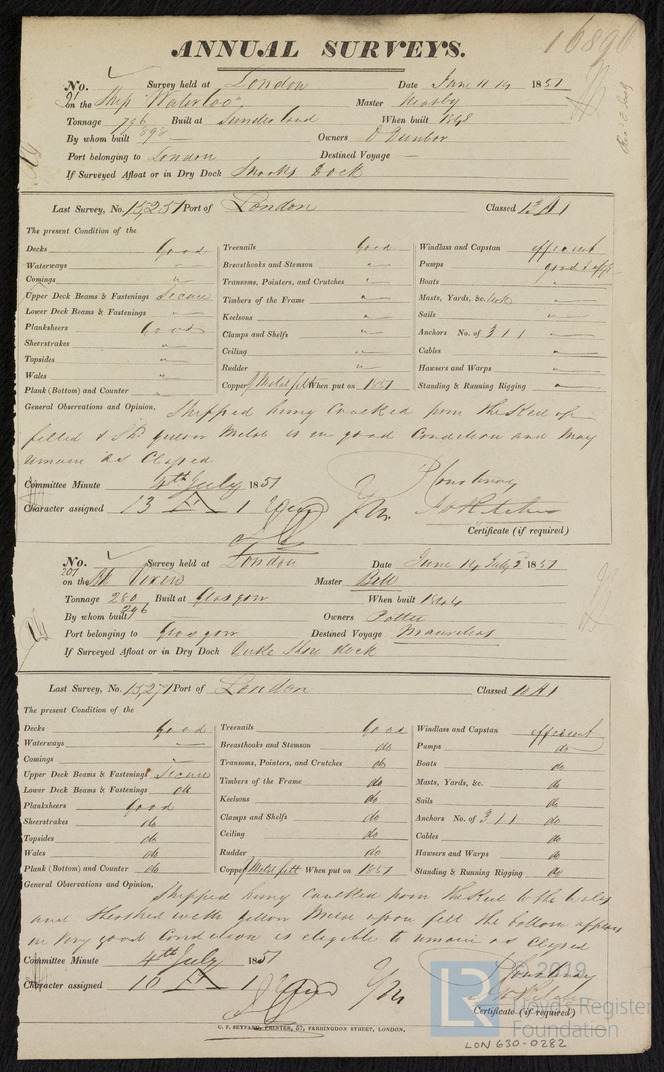 16890
ANNUAL SURVEYS.
No. Survey held at London Date June 4 14 1851
on the Ship Waterloo Master Neasby
Tonnage 796 Built at Sunderland When built 1848
By whom built 898 Owners D Dunbar
Port belonging to London Destined Voyage —
If Surveyed Afloat or in Dry Dock Dock
Last Survey, No. 15,251 Port of London Classed 13 A 1
The present Condition of the
Decks Good
Waterways "
Comings "
Upper Deck Beams & Fastenings Secure
Lower Deck Beams & Fastenings "
Planksheers Good
Sheerstrakes "
Topsides "
Wales "
Plank (Bottom) and Counter "
Treenails Good
Breasthooks and Stemson "
Transoms, Pointers, and Crutches "
Timbers of the Frame "
Keelsons "
Clamps and Shelfs "
Ceiling "
Rudder "
Copper Y Metal felt When put on 1851
Windlass and Capstan efficient
Pumps good & effi
Boats "
Masts, Yards, &c. "
Sails "
Anchors No. of 3 1 1 "
Cables "
Hawsers and Warps "
Standing & Running Rigging "
General Observations and Opinion, Stripped hung Caulked from the Keel up
felted & Sh yellow Metal is in good Condition and may
remain as Classed
Committee Minute 4th July 1851
Character assigned 13 A 1
Certificate (if required)
No. 201 Survey held at London Date June 14 July 2 1851
on the Bk Vixen Master Bell
Tonnage 280 Built at Glasgow When built 1844
By whom built 296 Owners Potter
Port belonging to Glasgow Destined Voyage Mauritius
If Surveyed Afloat or in Dry Dock Duke Shore dock
Last Survey, No. 15271 Port of London Classed 10 A 1
The present Condition of the
Decks Good
Waterways "
Comings "
Upper Deck Beams & Fastenings Secure
Lower Deck Beams & Fastenings do
Planksheers Good
Sheerstrakes do
Topsides do
Wales do
Plank (Bottom) and Counter do
Treenails Good
Breasthooks and Stemson do
Transoms, Pointers, and Crutches do
Timbers of the Frame do
Keelsons do
Clamps and Shelfs do
Ceiling do
Rudder do
Copper Y Metal felt When put on 1851
Windlass and Capstan efficient
Pumps do
Boats do
Masts, Yards, &c. do
Sails do
Anchors No. of 3 1 1 do
Cables do
Hawsers and Warps do
Standing & Running Rigging do
General Observations and Opinion, Stripped hung Caulked from the Keel to the Wales
and Sheathed with yellow Metal upon felt the bottom appears
in very good Condition is eligible to remain as Classed
Committee Minute 4th July 1851
Character assigned 10 A 1
Certificate (if required)
C. F. SEYFANG, PRINTER, 57, FARRINGDON STREET, LONDON.
LR © 2019
Lloyd's Register
Foundation
LON 630-0282